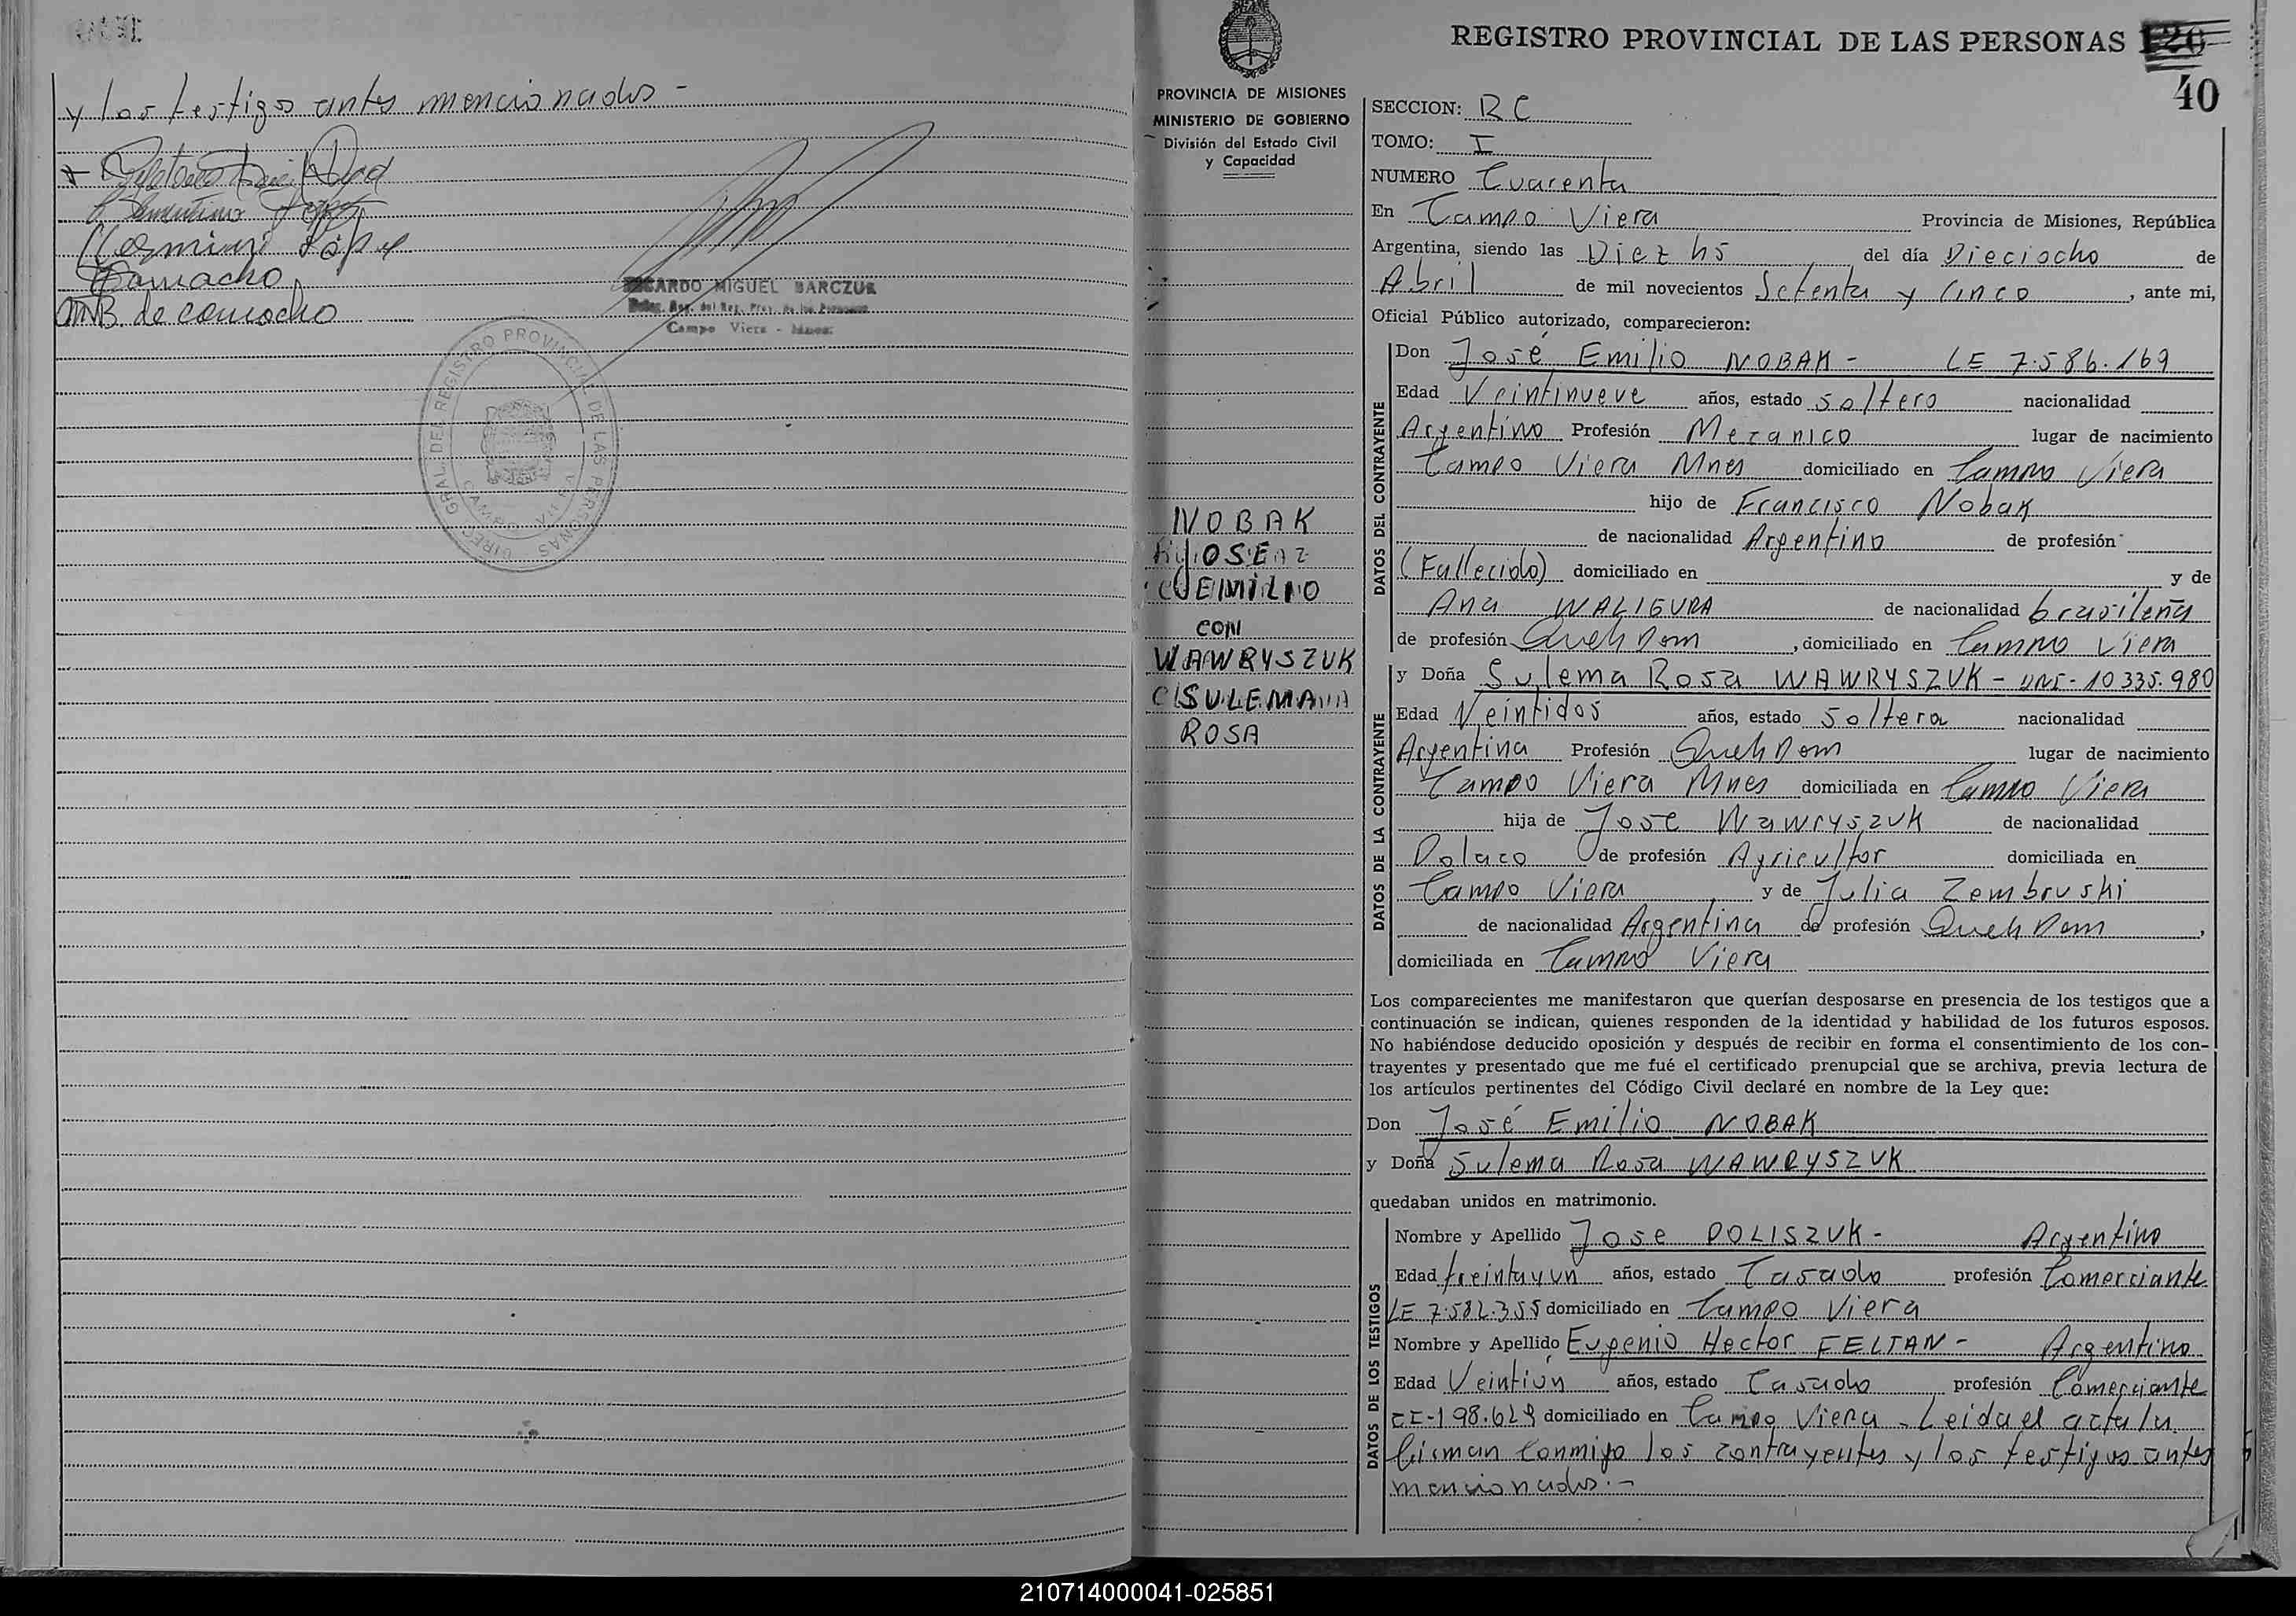 y los testigo antes mencionados -
Camacho
MB. de camacho
RICARDO MIGUEL BARCZUK
Deleg. Reg. del Reg. Prov. de las Personas
Campo Viera - Mnes.
DIREC. GRAL. DEL REGISTRO PROVINCIAL DE LAS PERSONAS
CAMPO VIERA
REGISTRO PROVINCIAL DE LAS PERSONAS 126
40
PROVINCIA DE MISIONES
MINISTERIO DE GOBIERNO
División del Estado Civil
y Capacidad
NOBAK
JOSE
EMILIO
CON
WAWRYSZUK
SULEMA
ROSA
SECCION: RC
TOMO: I
NUMERO Cuarenta
En Campo Viera Provincia de Misiones, República
Argentina, siendo las Diez hs del día Dieciocho de
Abril de mil novecientos Setenta y Cinco, ante mi,
Oficial Público autorizado, comparecieron:
DATOS DEL CONTRAYENTE
Don José Emilio NOBAK - LE 7.586.169
Edad Veintinueve años, estado soltero nacionalidad
Argentino Profesión Mecanico lugar de nacimiento
Campo Viera Mnes domiciliado en Campo Viera
hijo de Francisco Nobak
de nacionalidad Argentino de profesión
(Fallecido) domiciliado en y de
Ana WALIGURA de nacionalidad brasileña
de profesión Queh Dom, domiciliado en Campo Viera
DATOS DE LA CONTRAYENTE
y Doña Sulema Rosa WAWRYSZUK - DNI - 10335.980
Edad Veintidos años, estado soltera nacionalidad
Argentina Profesión Queh Dom lugar de nacimiento
Campo Viera Mnes domiciliada en Campo Viera
hija de Jose Wawryszuk de nacionalidad
Polaco de profesión Agricultor domiciliada en
Campo Viera y de Julia Zembruski
de nacionalidad Argentina de profesión Queh Dom,
domiciliada en Campo Viera
Los comparecientes me manifestaron que querían desposarse en presencia de los testigos que a
continuación se indican, quienes responden de la identidad y habilidad de los futuros esposos.
No habiéndose deducido oposición y después de recibir en forma el consentimiento de los con-
trayentes y presentado que me fué el certificado prenupcial que se archiva, previa lectura de
los artículos pertinentes del Código Civil declaré en nombre de la Ley que:
Don José Emilio NOBAK
y Doña Sulema Rosa WAWRYSZUK
quedaban unidos en matrimonio.
DATOS DE LOS TESTIGOS
Nombre y Apellido Jose POLISZUK - Argentino
Edad treintayun años, estado Casado profesión Comerciante
LE 7.582.355 domiciliado en Campo Viera
Nombre y Apellido Eugenio Hector FELTAN - Argentino
Edad Veintiún años, estado Casado profesión Comerciante
CI-198.629 domiciliado en Campo Viera - Leida el acta la
firman conmigo los contrayentes y los testigos antes
mencionados.-
210714000041-025851